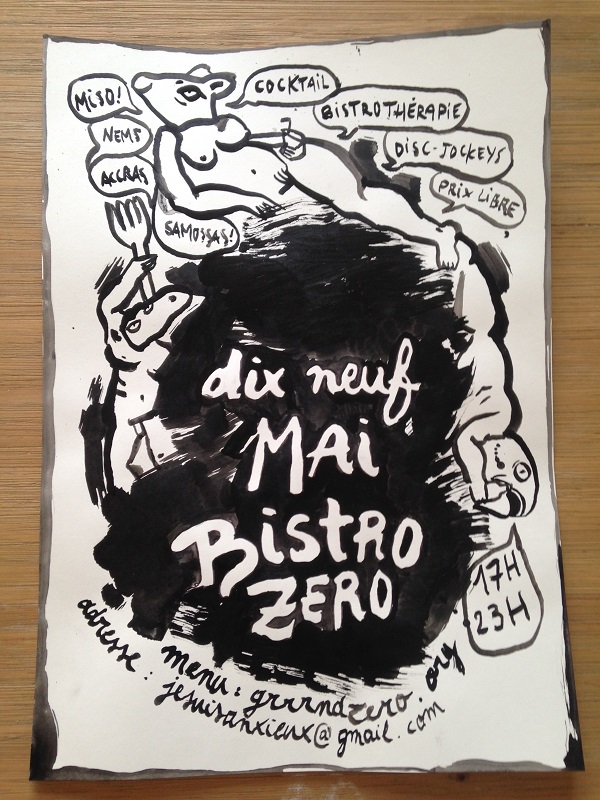 MISO!
NEMS
ACCRAS
SAMOSSAS!
COCKTAIL
BISTROTHÉRAPIE
DISC-JOCKEYS
PRIX LIBRE
dix neuf
MAI
BISTRO
ZERO
17H
23H
menu: grrrndzero.org
adresse: jesuisanxieux@gmail.com